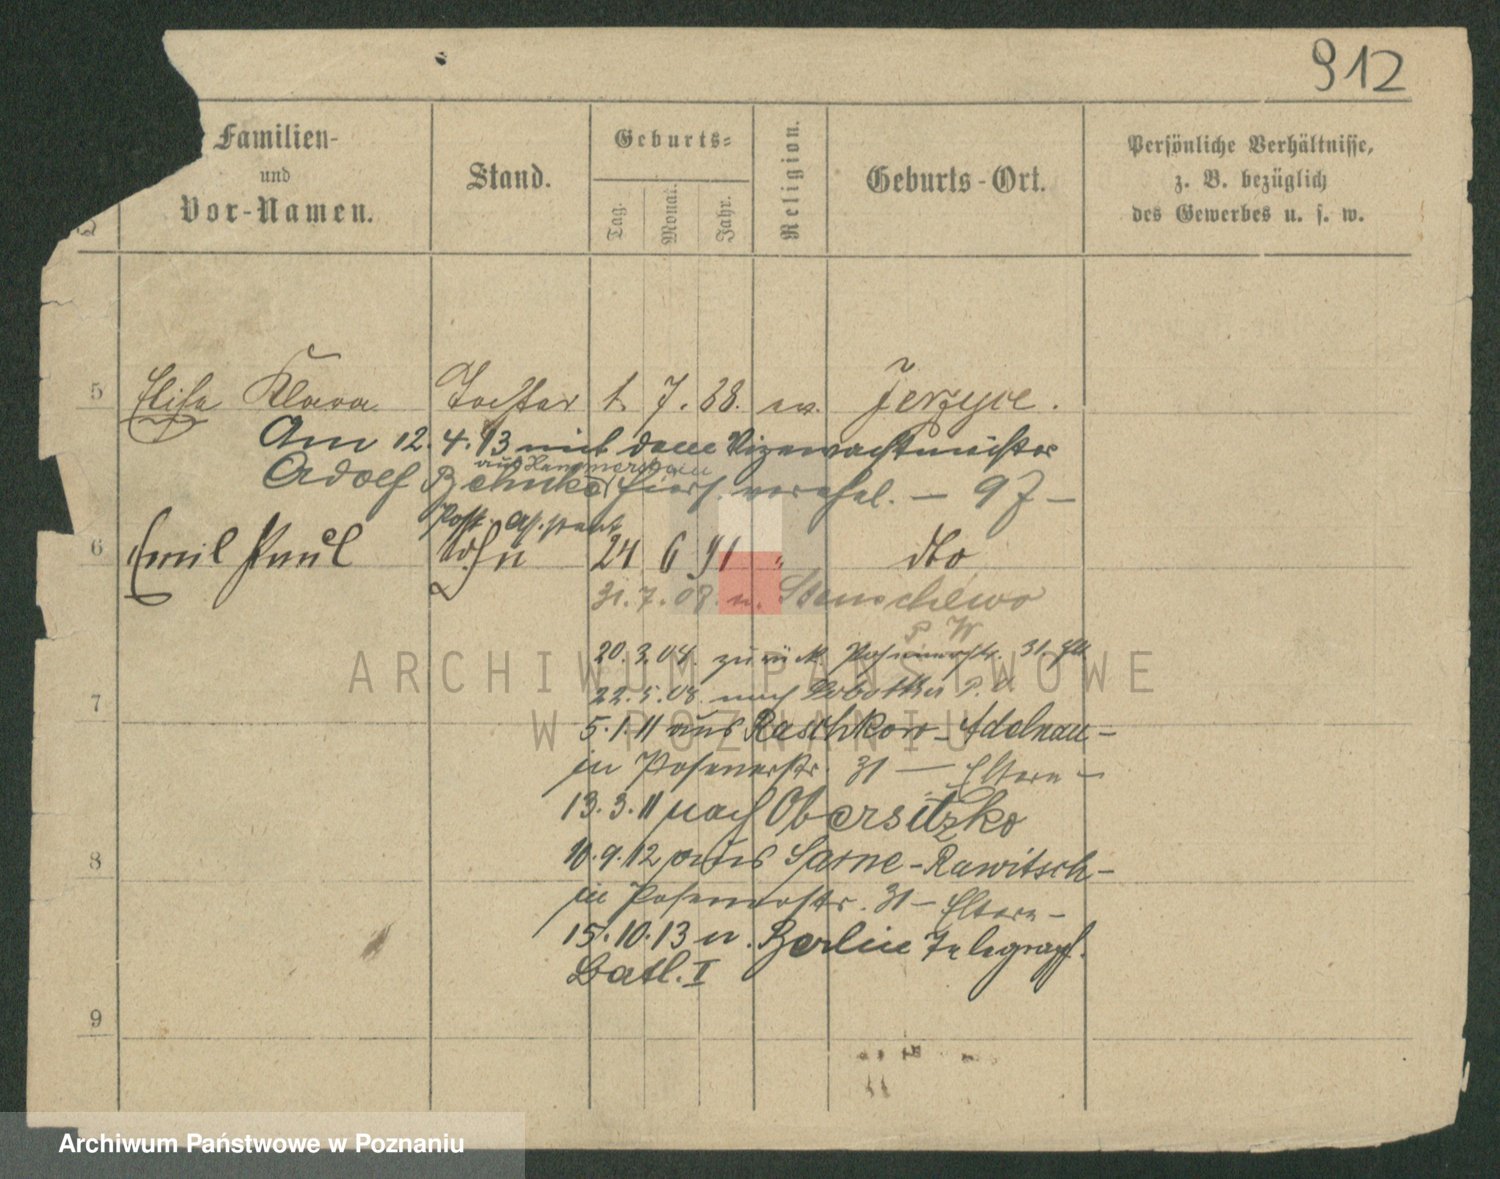 912
Familien-
und
Vor-Namen.
Stand.
Geburts-
Tag.
Monat.
Jahr.
Religion.
Geburts-Ort.
Persönliche Verhältnisse,
z. B. bezüglich
des Gewerbes u. s. w.
5 Elise Klara Tochter 1. 7. 88. ev. Jerzyce.
Am 12. 4. 13 mit dem Vizewachtmeister
aus Hammerstein
Adolf Behnke hier verehel. — 97 —
Post-Assistent
6 Emil Paul Sohn 24 6 91 " dto
31. 7. 08. n. Stenschewo
P W
20. 3. 08. zurück Posenerstr. 31
22. 5. 08. nach
7
5. 1. 11 aus Raschkow-Adelnau-
in Posenerstr. 31 — Eltern —
13. 3. 11 nach Obersitzko
8
10. 9. 12 aus Sarne-Rawitsch-
in Posenerstr. 31 — Eltern —
15. 10. 13 n. Berlin Telegraph.
Batl. I
9
ARCHIWUM PAŃSTWOWE
W POZNANIU
Archiwum Państwowe w Poznaniu